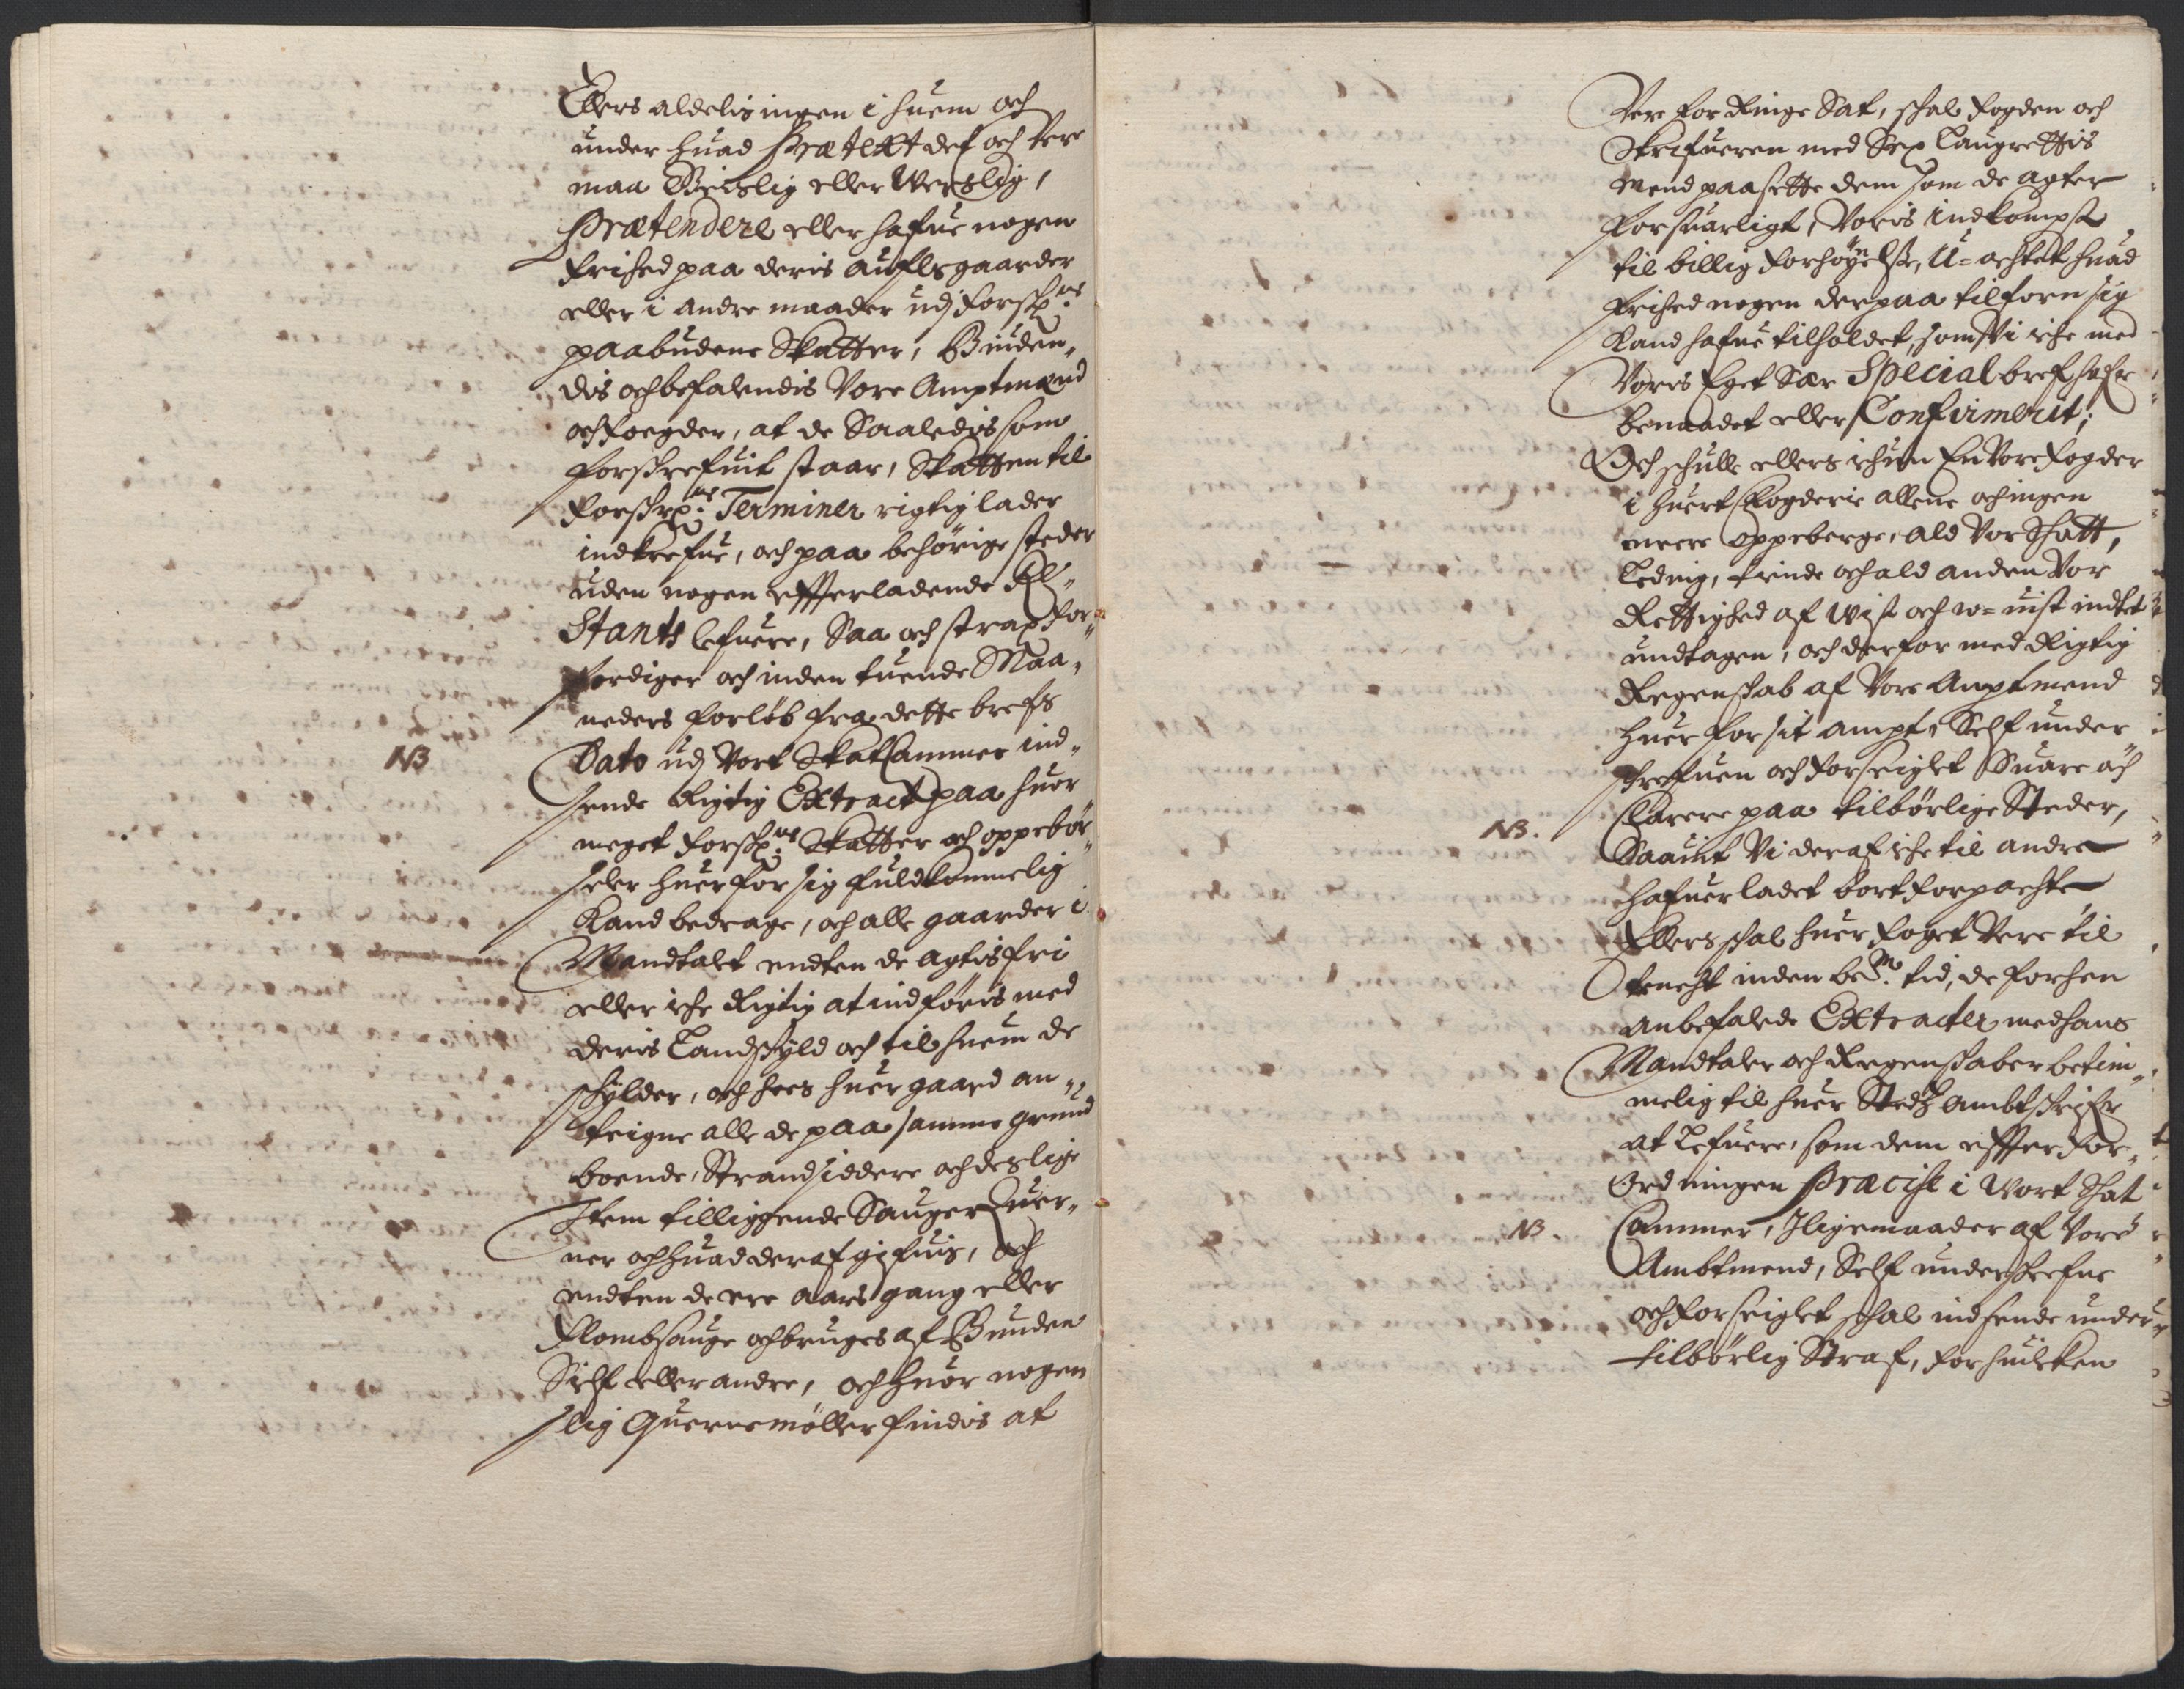 Ellers aldelis ingen i huem och
under huad Prætext det och vere
maa Geistlig eller Werslig,
Prætendere eller hafue nogen
frihed paa deris aufls gaarder
eller i andre maader udj forschr:ne
paabudene Skatter, Biuden„
dis och befalendis Vore Amptmænd
och foegder, at de Saaledis som
forskrefuit staar, Skatten til
forskr:ne Terminer rigtig lader
indkrefue, och paa behörige steder
uden nogen effterladende Re„
Stants lefuere, Saa och strax for„
færdiger och inden tuende Maa„
neders forlöb fra dette brefs
NB Dato udj Vort Skatkammer ind„
sende Rigtig Extract paa huor
meget forschr:ne Skatter och oppebör„
seler huer for sig fuldkommelig
Kand bedrage, och alle gaarder i
Mandtalt endten de agtis fri
eller iche Rigtig at indföris med
deris Landskyld och til huem de
schylder, och hoes huer gaard an„
teigne alle de paa samme grund
boende, Strandsiddere och deslige
Item tilliggende Sauger Quer„
ner och huad deraf gifuis, och
endten de ere aars gang eller
flombsauge och bruges af Bunden
Sielf eller andre, och huor nogen
slig Querne möller findis at
Vere for Ringe Sat, schal fogden och
Skrifueren med Sex Laugrettis
Mend paasette dem som de agter
forsuarligt, Voris indkompst
til billig forhöyelse, U=achtet huad
frihed nogen der paa tilforn sig
Kand hafue tilholdet, som Vi iche med
Voris Eget Sær Special bref hafr
benaadet eller Confirmerit;
Och schulle ellers ichun En Vore fogder
i huert fogderie allene och ingen
meere oppeberge, ald Vor Schatt,
Leding, tiende och ald anden Vor
Rettighed af Wist och w=uist indtet
undtagen, och derfor med Rigtig
Regenskab af Vore Amptmend
huer for sit ampt, Self under
schrefuen och forseiglet Suare och
NB. Clarere paa tilbörlige Steder,
Saauit Vi deraf iche til andre
hafuer ladet bortforpachte
Ellers schal huer foget Vere til
tencht inden be:te tid, de forhen
anbefalede Extracter med hans
Mandtaler och Regenskaber betim„
melig til huer Stedz ambtskrifr
at Lefuere, som dem effter for„
Ordningen Præcise i Wort Schat
NB. Cammer, Iligemaader af Vore
Ambtmend, Self underskrefne
och forseiglet schal indsende under
tilbörlig Straf, forhuilken